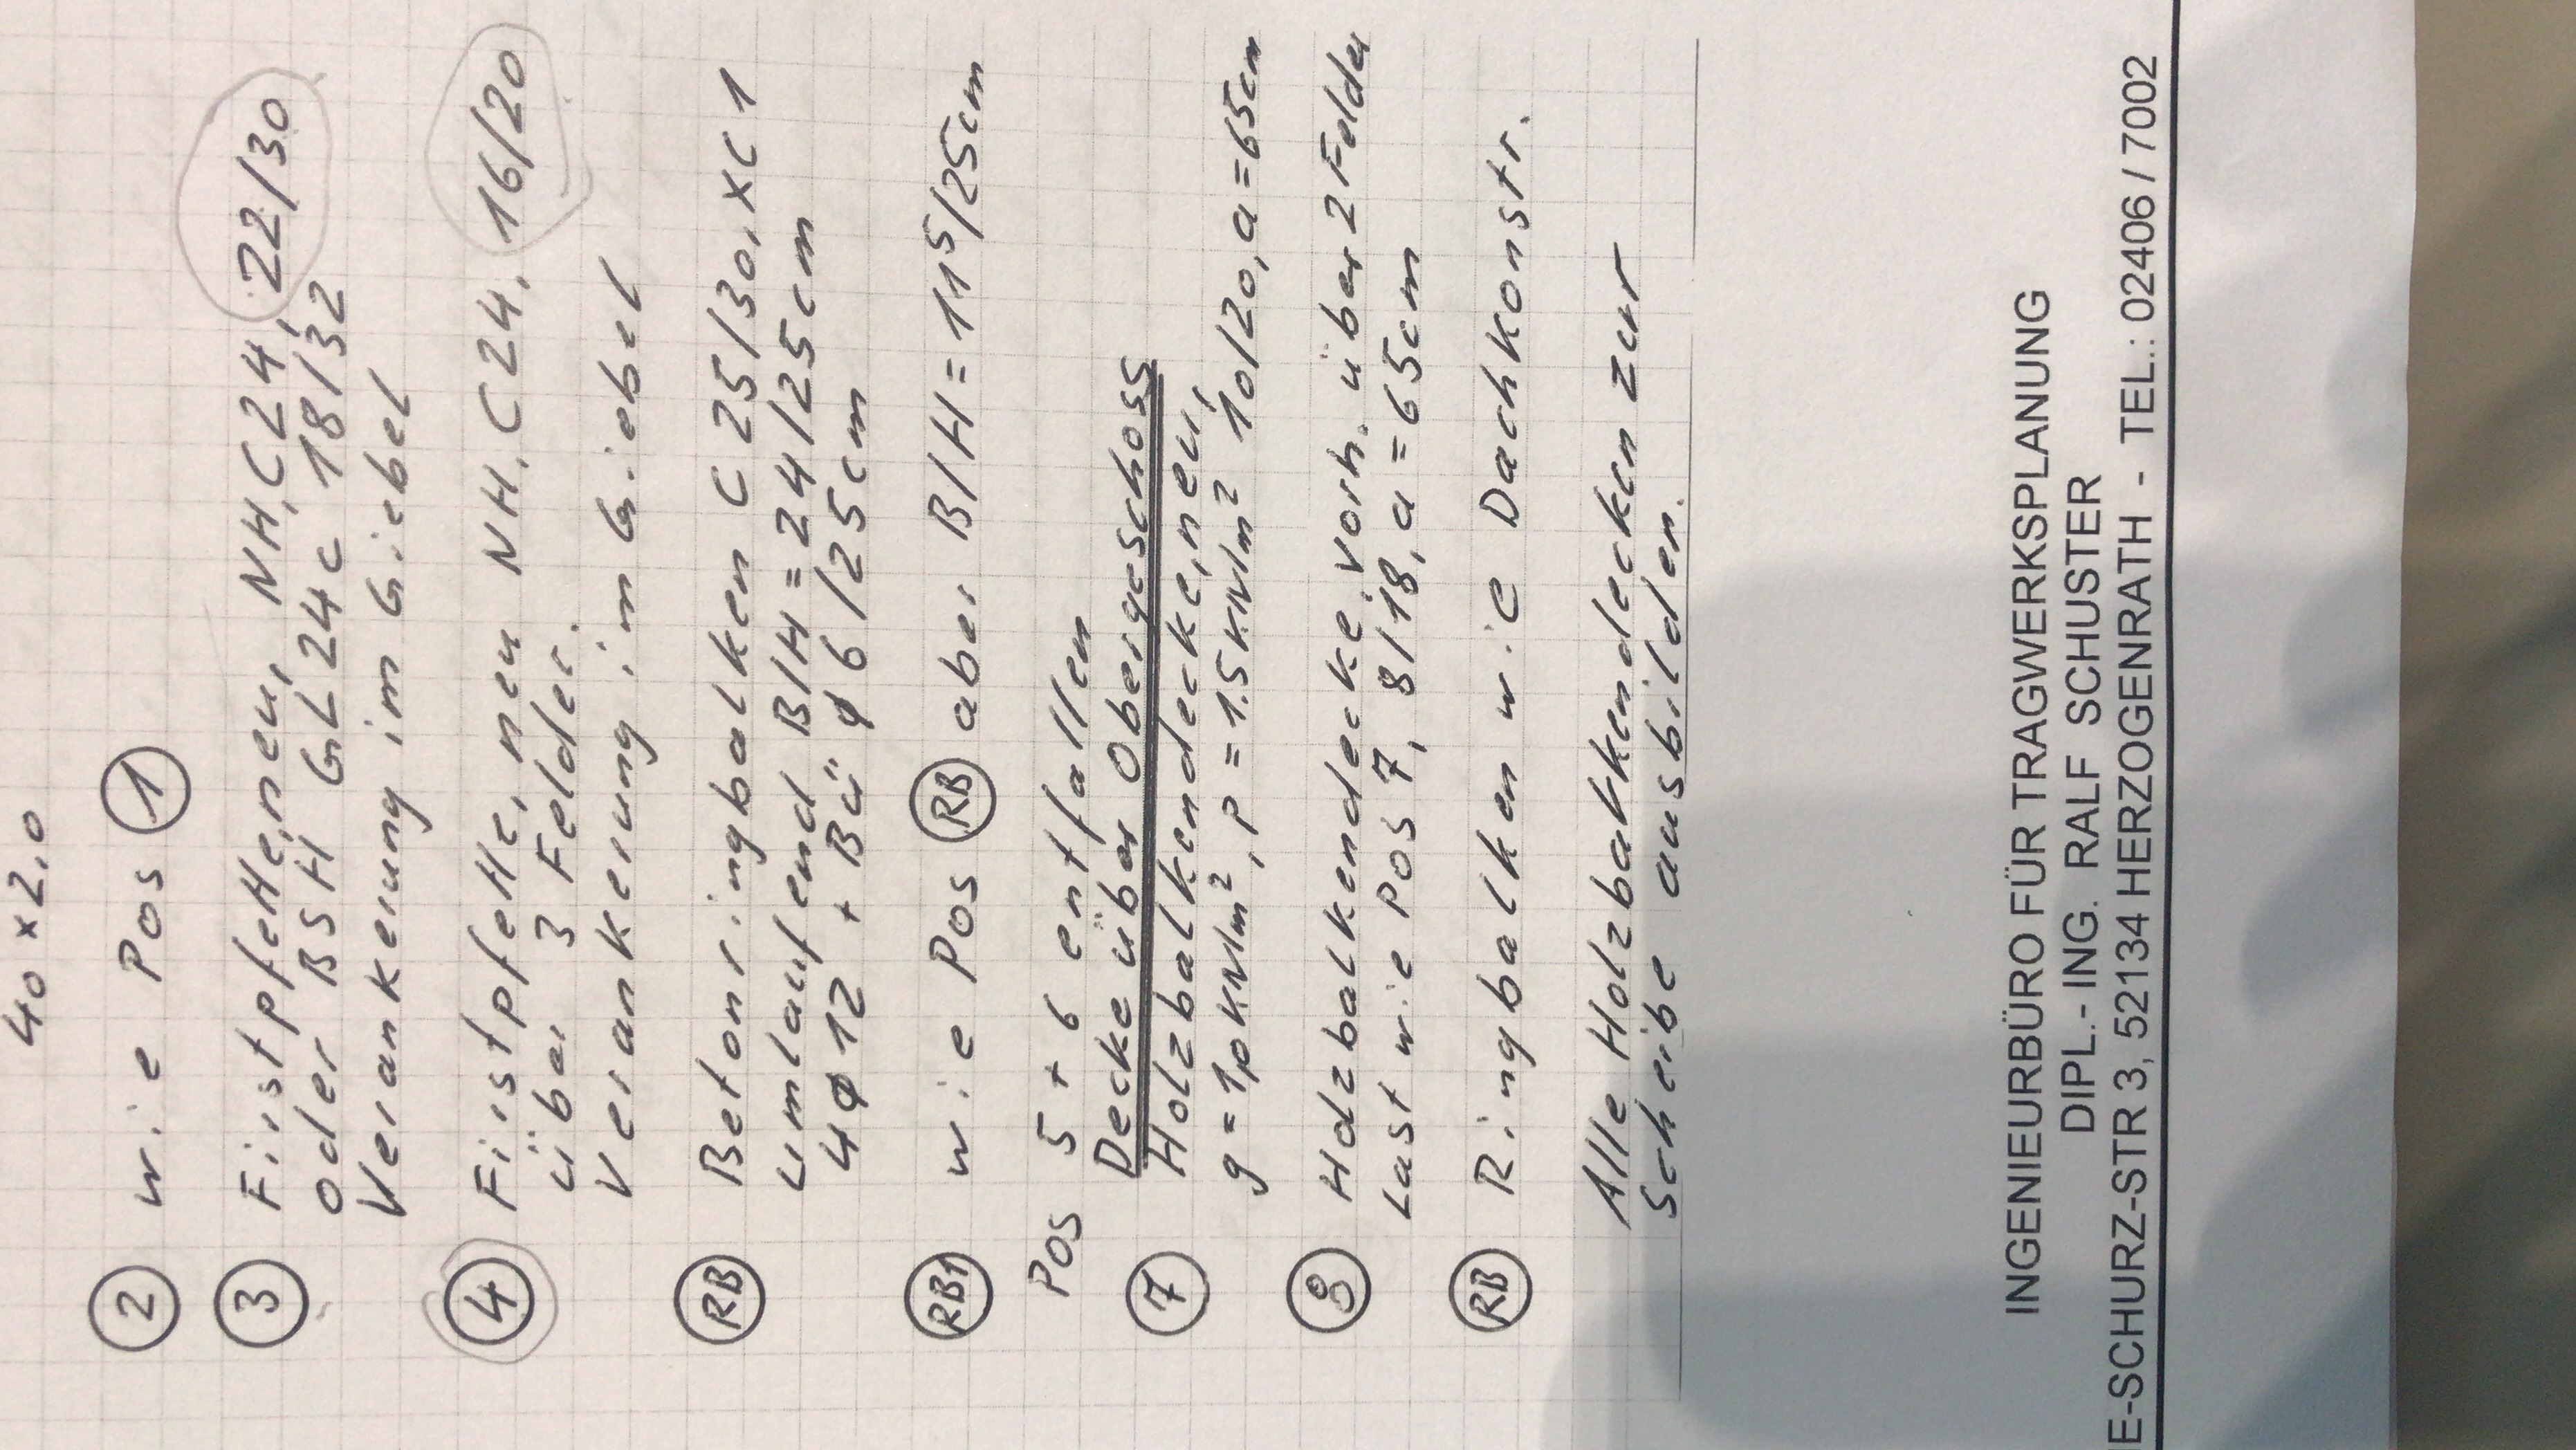 40 x 2,0
2 wie Pos 1
3 Firstpfette, neu, NH, C24, 22/30
oder BSH GL24c 18/32
Verankerung im Giebel
4 Firstpfette, neu NH, C24, 16/20
über 3 Felder.
Verankerung im Giebel
RB Betonringbalken C25/30, XC1
umlaufend B/H = 24/25cm
4Ø12 + Bü Ø6/25cm
RB1 wie Pos RB aber B/H = 11⁵/25cm
Pos 5 + 6 entfallen
Decke über Obergeschoss
7 Holzbalkendecke, neu,
g = 1,0 kN/m², p = 1.5 kN/m² 10/20, a = 65cm
8 Holzbalkendecke, vorh. über 2 Felder
Last wie Pos 7, 8/18, a = 65cm
RB Ringbalken wie Dachkonstr.
Alle Holzbalkendecken zur
Scheibe ausbilden.
INGENIEURBÜRO FÜR TRAGWERKSPLANUNG
DIPL.- ING. RALF SCHUSTER
E-SCHURZ-STR 3, 52134 HERZOGENRATH - TEL.: 02406 / 7002